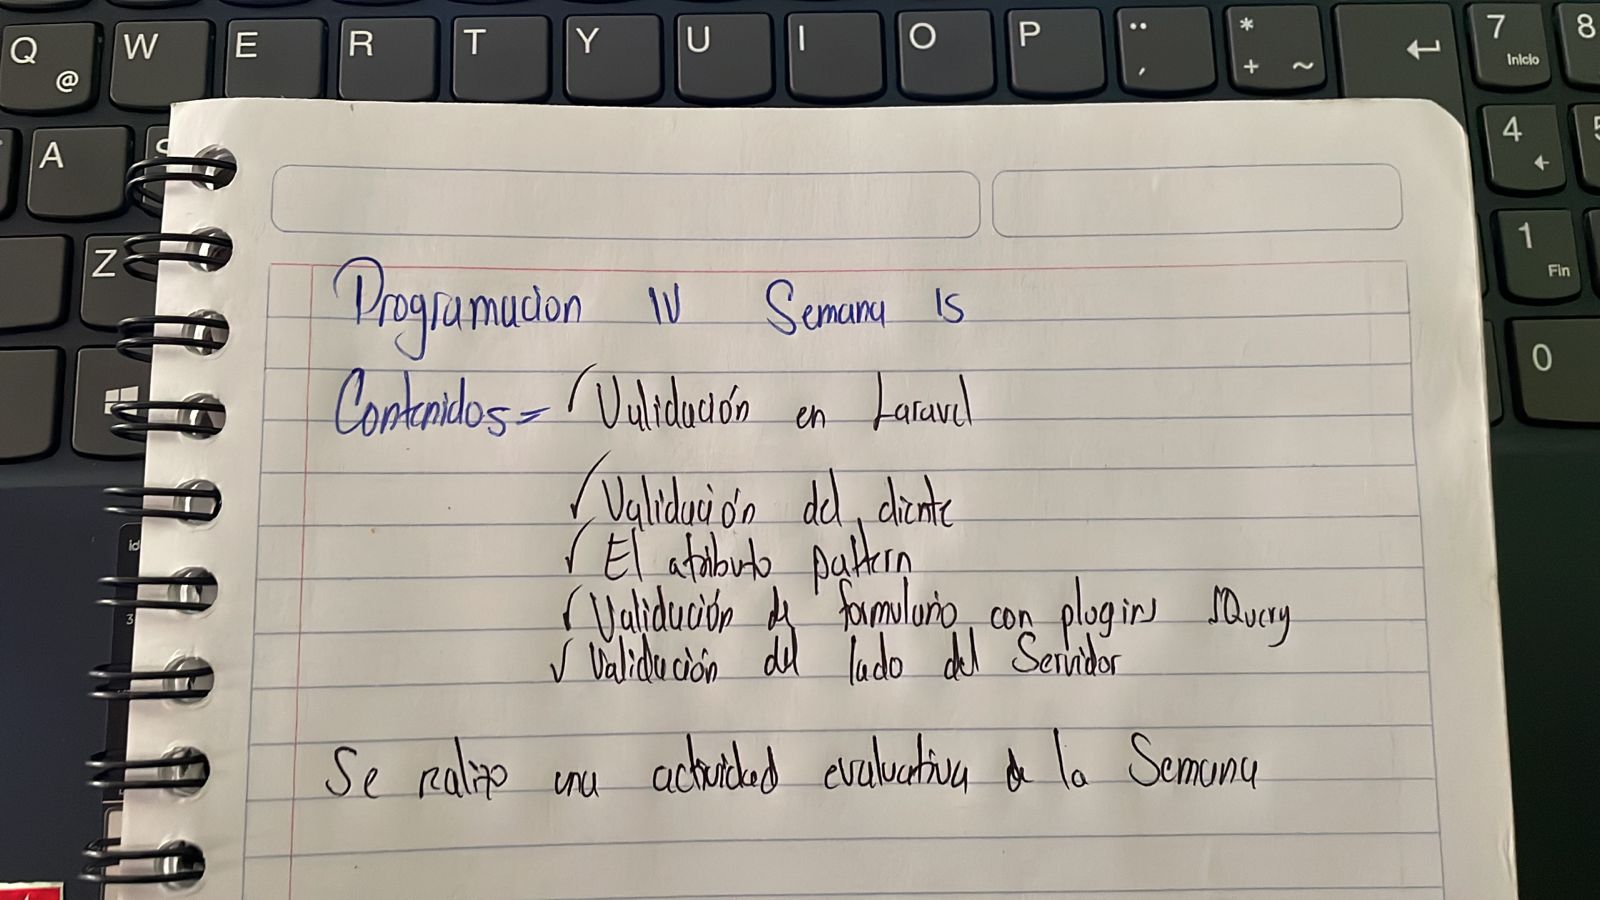 Q @ W E R T Y U I O P ¨ , * + ~ 7 Inicio 8
A S 4 5
Z 1 Fin
0
Programacion IV Semana 15
Contenidos = ✓ Validación en Laravel
✓ Validación del cliente
✓ El atributo pattern
✓ Validación de formulario con plugins JQuery
✓ Validación del lado del Servidor
Se realizo una actividad evaluativa de la Semana
id
3